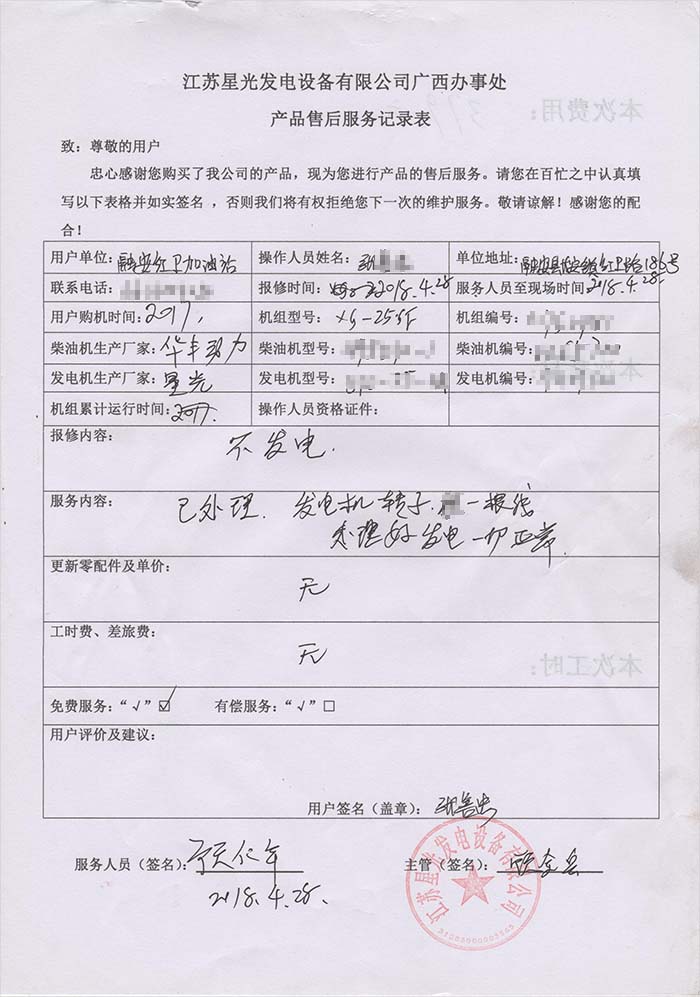 江苏星光发电设备有限公司广西办事处
产品售后服务记录表
致：尊敬的用户
忠心感谢您购买了我公司的产品，现为您进行产品的售后服务。请您在百忙之中认真填
写以下表格并如实签名，否则我们将有权拒绝您下一次的维护服务。敬请谅解！感谢您的配
合！
用户单位：融安红卫加油站 操作人员姓名： 单位地址：融安县长安镇红卫路186号
联系电话： 报修时间：2018.4.28 服务人员至现场时间 2018.4.28.
用户购机时间：2017. 机组型号：XG-25GF 机组编号：
柴油机生产厂家：华丰动力 柴油机型号： 柴油机编号：
发电机生产厂家：星光 发电机型号： 发电机编号：
机组累计运行时间：2017. 操作人员资格证件：
报修内容：
不发电.
服务内容：已处理. 发电机转子 一根线
处理好发电一切正常.
更新零配件及单价：
无
工时费、差旅费：
无
免费服务：“√”☑ 有偿服务：“√”□
用户评价及建议：
用户签名（盖章）：
服务人员（签名）： 主管（签名）：
2018.4.28.
江苏星光发电设备有限公司
本次费用：
本次工时：